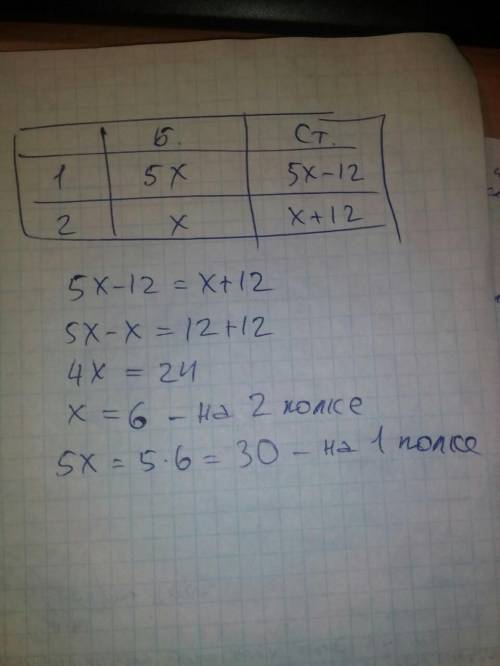 Б. Ст.
1 5x 5x-12
2 x x+12
5x-12 = x+12
5x-x = 12+12
4x = 24
x = 6 - на 2 полке
5x = 5·6 = 30 - на 1 полке